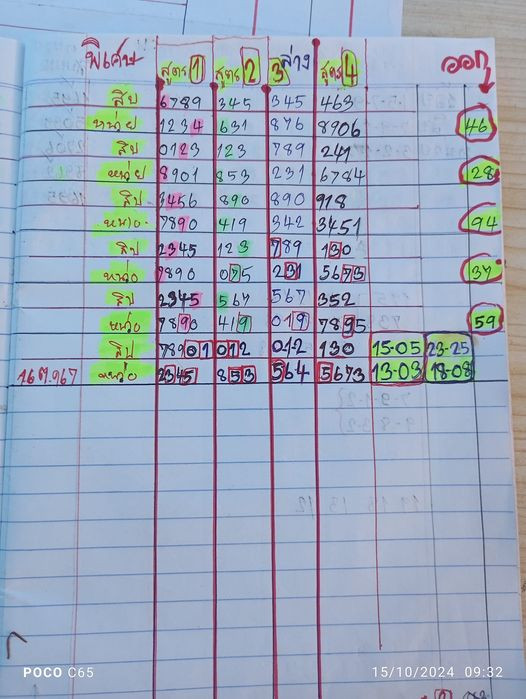 พิเศษ สูตร 1 สูตร 2 3 ล่าง สูตร 4 ออก
สิบ 6789 345 345 463
หน่วย 1234 631 876 8906 46
สิบ 0123 123 789 241
หน่วย 8901 853 231 6784 28
สิบ 3456 890 890 918
หน่วย 7890 419 342 3451 94
สิบ 2345 123 789 130
หน่วย 7890 075 231 5673 37
สิบ 2345 567 567 352
หน่วย 7890 419 019 7895 59
สิบ 78901 012 012 130 15-05 23-25
16ต.ค67 หน่วย 2345 853 564 5673 13-03 18-08
POCO C65 15/10/2024 09:32